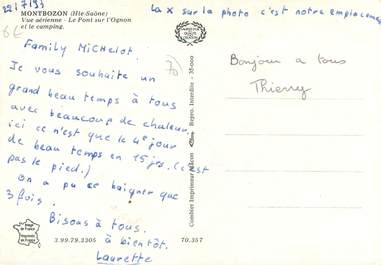 22/7/93
MONTBOZON (Hte-Saône)
Vue aérienne - Le Pont sur l'Ognon
et le camping.
6€
La x sur la photo c'est notre emplacement
Family Michelot.
70
Je vous souhaite un
grand beau temps à tous
avec beaucoup de chaleur
ici ce n'est que le 4e jour
de beau temps en 15 jrs. (c'est
pas le pied.)
On a pu se baigner que
3 fois.
Bisous à tous.
à bientôt.
Laurette
Bonjour a tous
Thierry
Combier Imprimeur Macon
Repro. Interdite - 35-000
3.99.79.2305
70.357